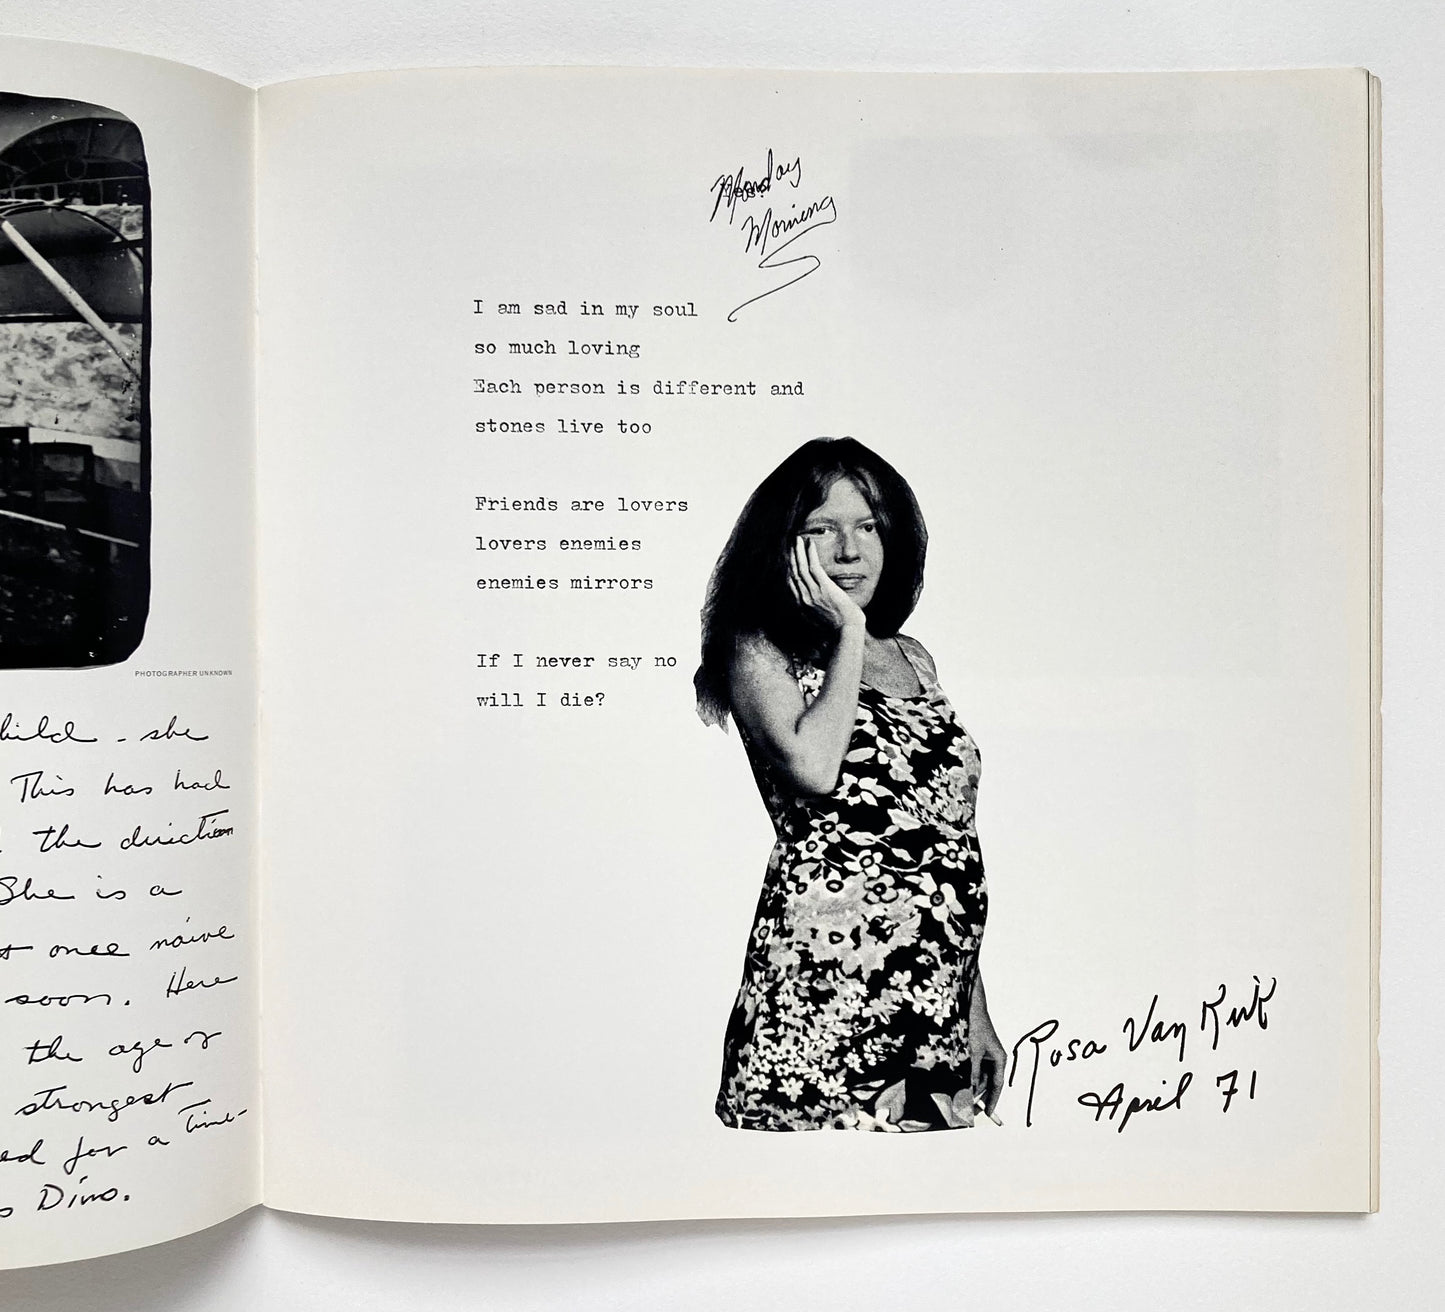 PHOTOGRAPHER UNKNOWN
hild - she
This has had
the direction
She is a
once naive
soon. Here
the age of
strongest
ed for a time-
Dino.
Monday
Morning
I am sad in my soul
so much loving
Each person is different and
stones live too
Friends are lovers
lovers enemies
enemies mirrors
If I never say no
will I die?
Rosa Van Kirk
April 71